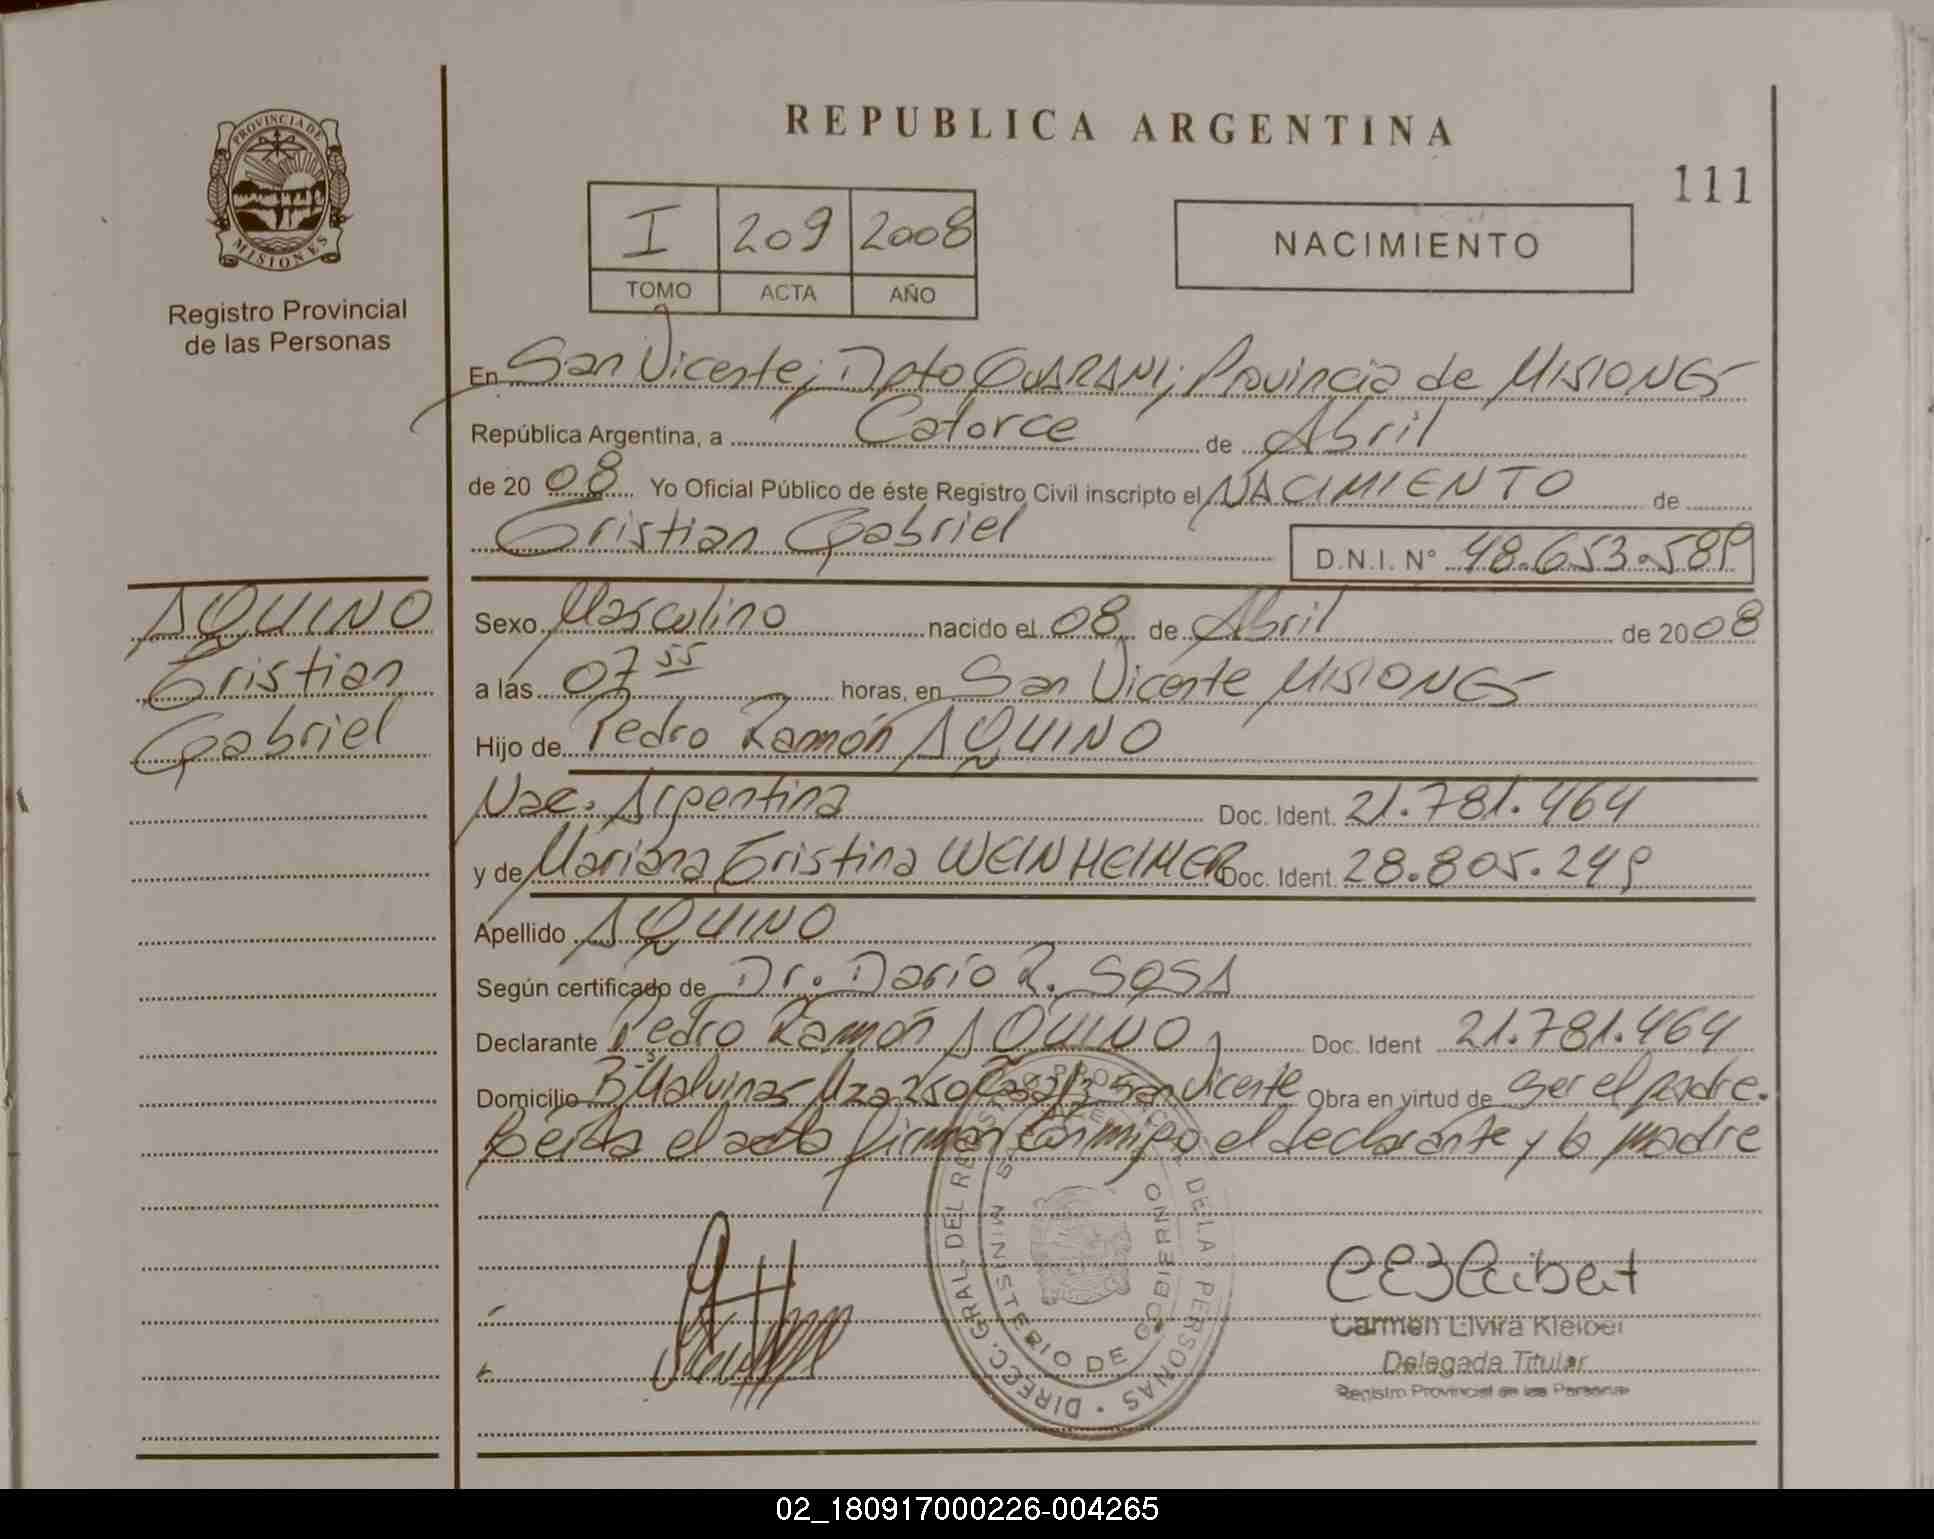 REPUBLICA ARGENTINA
111
PROVINCIA DE
MISIONES
Registro Provincial
de las Personas
I 209 2008
TOMO ACTA AÑO
NACIMIENTO
En San Vicente; Dpto GUARANI; Provincia de MISIONES
República Argentina, a Catorce de Abril
de 2008 Yo Oficial Público de éste Registro Civil inscripto el NACIMIENTO de
Cristian Gabriel D.N.I. N° 48.653.589
AQUINO
Cristian
Gabriel
Sexo Masculino nacido el 08 de Abril de 2008
a las 07 55 horas, en San Vicente MISIONES
Hijo de Pedro Ramón AQUINO
Nac. Argentina Doc. Ident. 21.781.464
y de Mariana Cristina WEINHEIMER Doc. Ident. 28.805.249
Apellido AQUINO
Según certificado de Dr. Darío R. SOSA
Declarante Pedro Ramón AQUINO Doc. Ident 21.781.464
Domicilio B° Malvinas Mza 250 Casa San Vicente Obra en virtud de ser el padre.
Leída el acta firman conmigo el declarante y la madre
DIRECC. GRAL. DEL DE LA PERSONAS
MINISTERIO DE GOBIERNO
Carmen Elvira Kleiber
Delegada Titular
Registro Provincial de las Personas
02_180917000226-004265